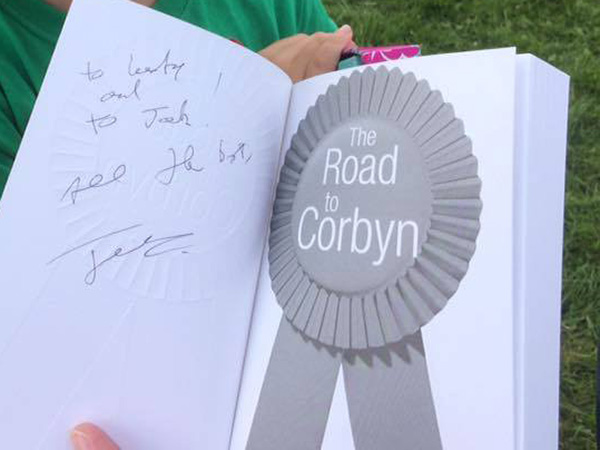 to
and !
to Jack.
all the best,
The
Road
to
Corbyn